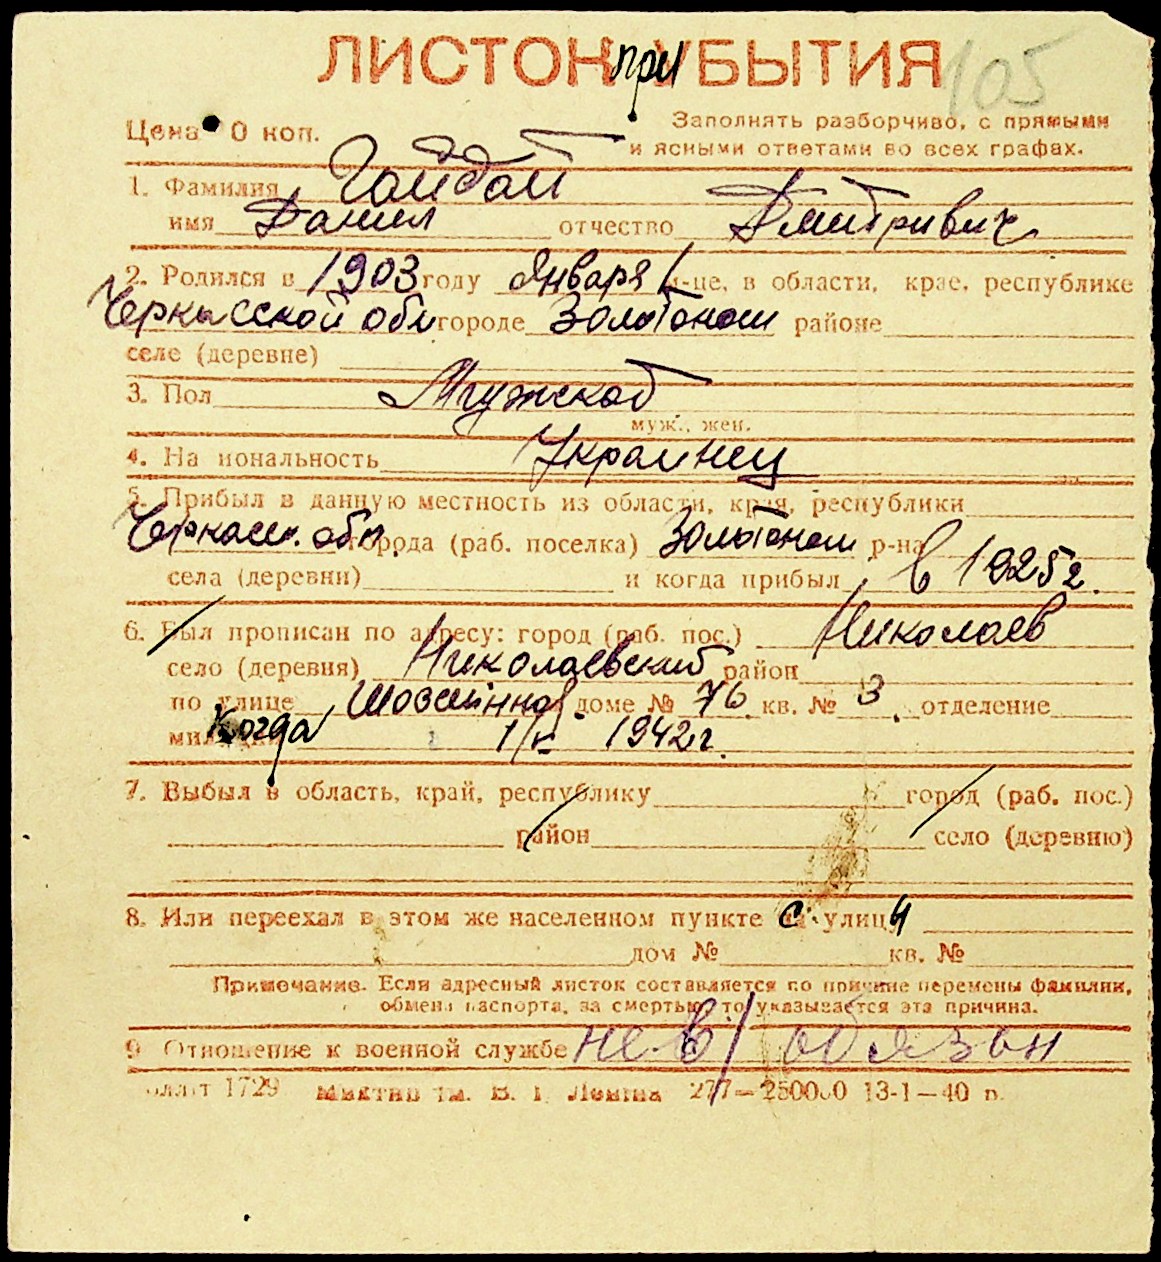 ЛИСТОК при УБЫТИЯ 105
Цена 0 коп.
Заполнять разборчиво, с прямыми
и ясными ответами во всех графах.
1. Фамилия Гайдай
имя Данил отчество Дмитривич
2. Родился в 1903 году Января 1 м-це, в области, крае, республике
Черкасской обл городе Золотоноши районе
селе (деревне)
3. Пол Мужской
муж., жен.
4. На иональность Украинец
5. Прибыл в данную местность из области, края, республики
Черкасс. обл. города (раб. поселка) Золотоноши р-на
села (деревни) и когда прибыл в 1925 г.
6. Был прописан по адресу: город (раб. пос.) Николаев
село (деревня) Николаевский район
по улице доме № 76 кв. № 3 отделение
милиции Когда 1942 г.
7. Выбыл в область, край, республику город (раб. пос.)
район село (деревню)
8. Или переехал в этом же населенном пункте с улицы
дом № кв. №
Примечание. Если адресный листок составляется по причине перемены фамилии,
обмена паспорта, за смертью, то указывается эта причина.
9 Отношение к военной службе не в/обязан
1729 им. В. І. Леніна 277—250000 13-1—40 р.